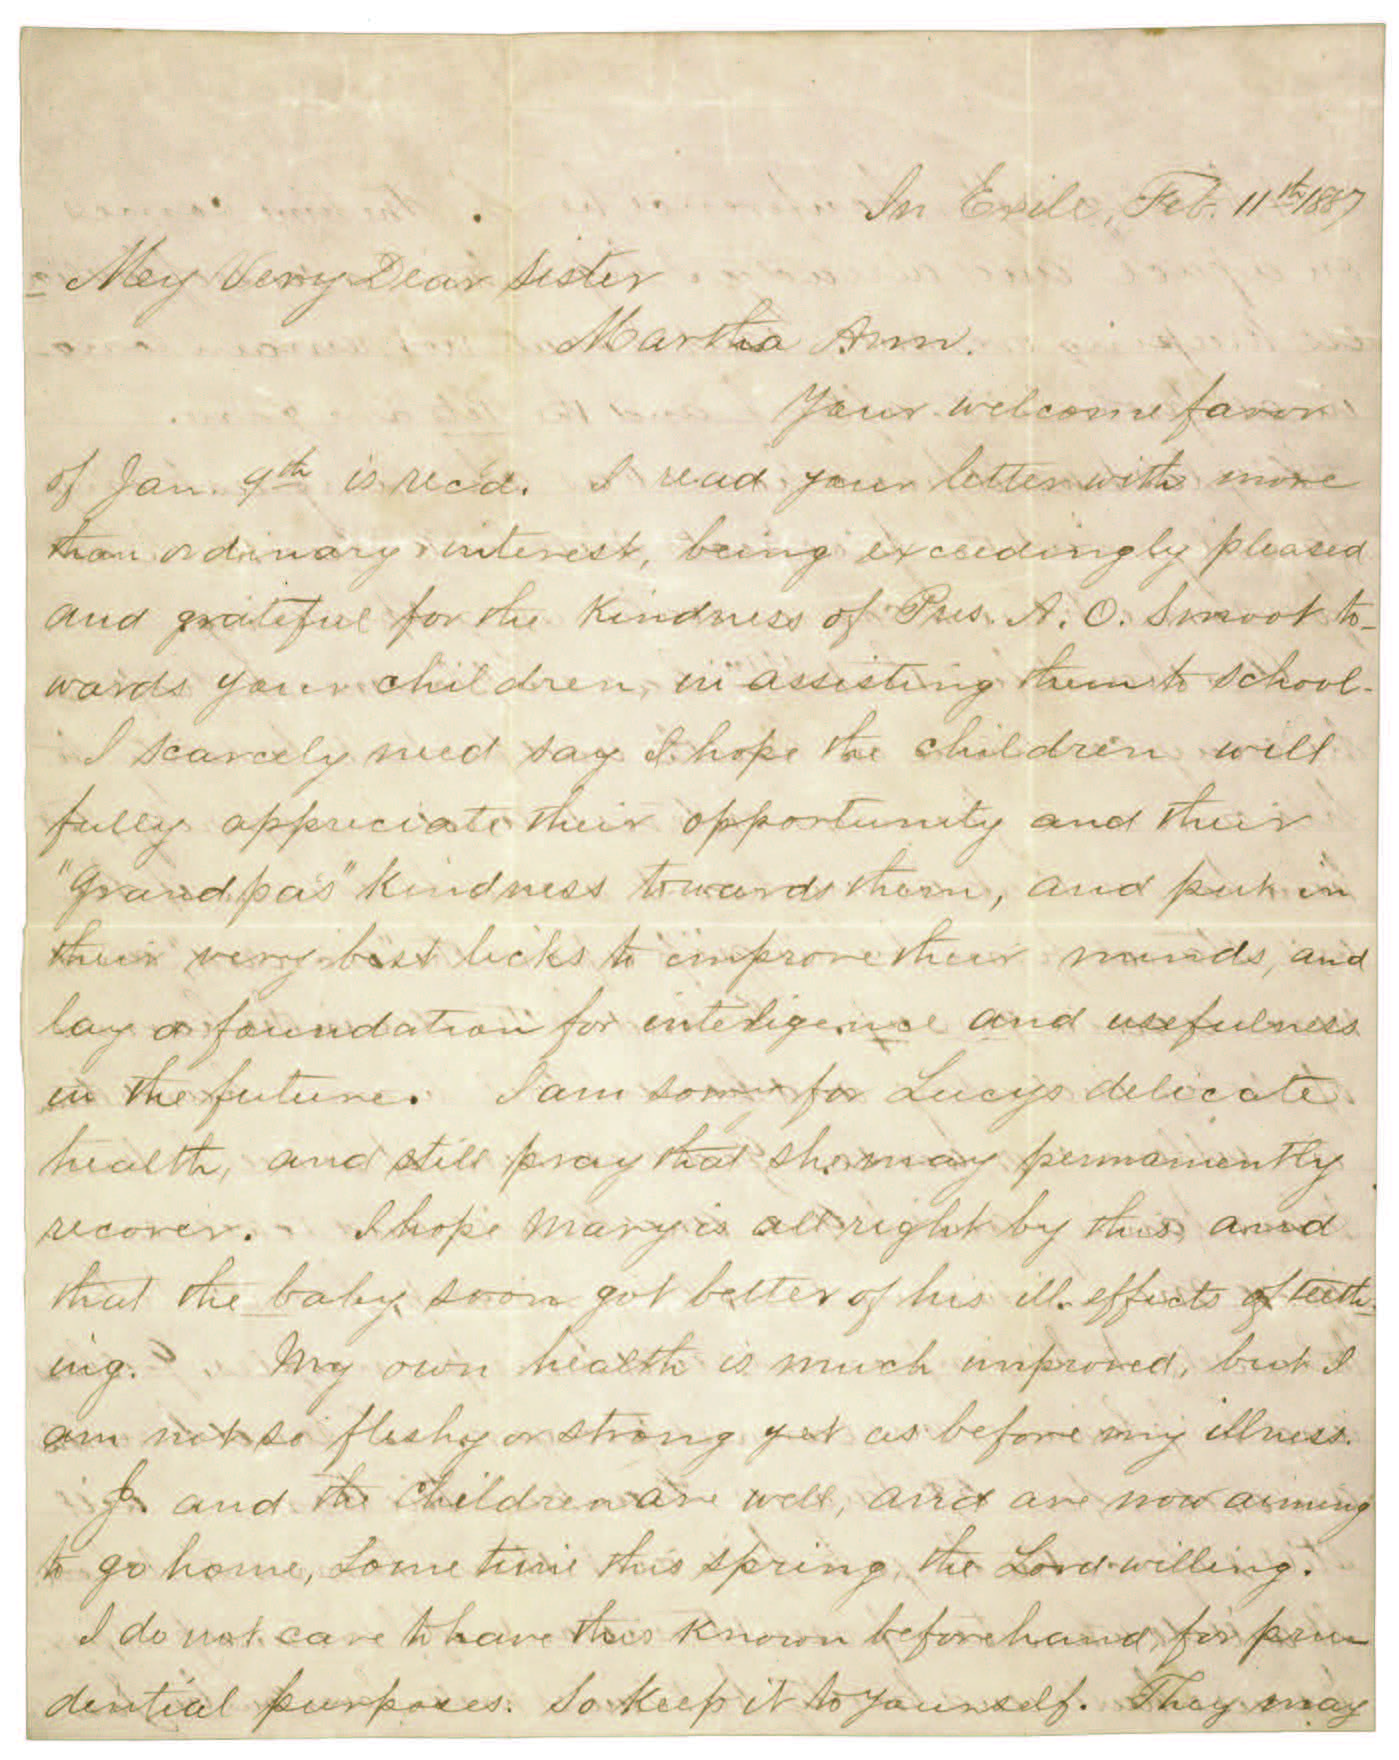 In Exile, Feb. 11th 1887
My Very Dear Sister
Martha Ann.
Your welcome favor
of Jan. 9th is rec'd. I read your letter with more
than ordinary interest, being exceedingly pleased
and grateful for the kindness of Pres. A. O. Smoot to-
wards your children, in assisting them to school.
I scarcely need say I hope the children will
fully appreciate their opportunity and their
"Grandpas" kindness towards them, and put in
their very best licks to improve their minds, and
lay a foundation for inteligence and usefulness
in the future. I am sorry for Lucys delicate
health, and still pray that she may permanently
recover. I hope Mary is all right by this and
that the baby soon got better of his ill effects of teeth-
ing. My own health is much improved, but I
am not so fleshy or strong yet as before my illness.
J. and the children are well, and are now aiming
to go home, some time this spring, the Lord willing.
I do not care to have this known beforehand, for pru-
dential purposes. So keep it to yourself. They may